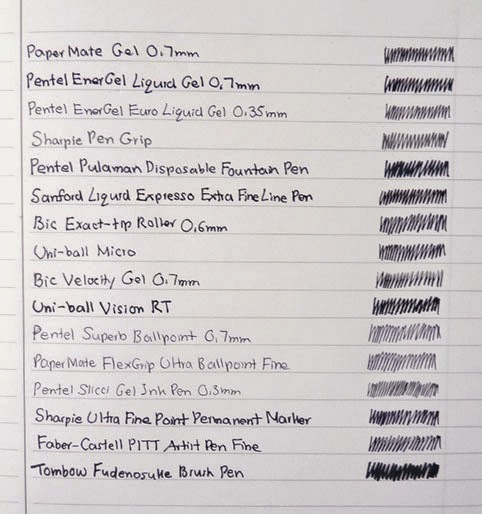 PaperMate Gel 0.7mm
Pentel EnerGel Liquid Gel 0.7mm
Pentel EnerGel Euro Liquid Gel 0.35mm
Sharpie Pen Grip
Pentel Pulaman Disposable Fountain Pen
Sanford Liquid Expresso Extra Fine Line Pen
Bic Exact-tip Roller 0.6mm
Uni-ball Micro
Bic Velocity Gel 0.7mm
Uni-ball Vision RT
Pentel Superb Ballpoint 0.7mm
PaperMate FlexGrip Ultra Ballpoint Fine
Pentel Slicci Gel Ink Pen 0.3mm
Sharpie Ultra Fine Point Permanent Marker
Faber-Castell PITT Artist Pen Fine
Tombow Fudenosuke Brush Pen